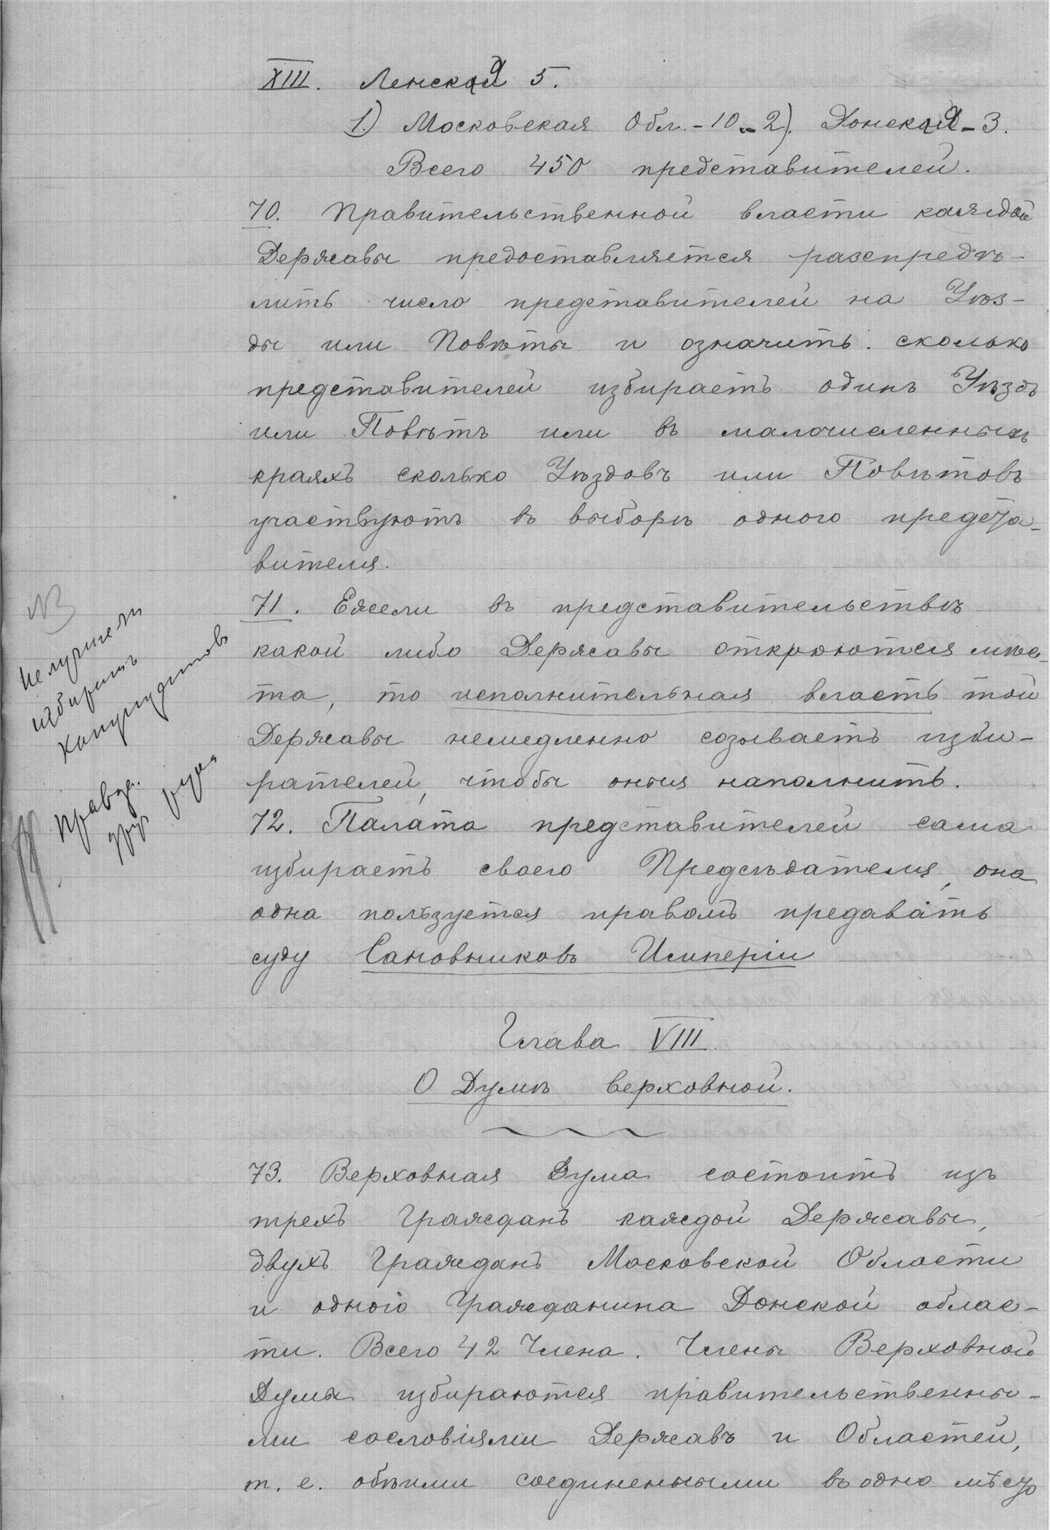 XIII. Ленская 5.
1.) Московская Обл. - 10 - 2). Донская - 3.
Всего 450 представителей.
70. Правительственной власти каждой
Державы предоставляется распредѣ-
лить число представителей на Уѣз-
ды или Повѣты и означить сколько
представителей избираетъ одинъ Уѣздъ
или Повѣтъ или въ малочисленныхъ
краяхъ сколько Уѣздовъ или Повѣтовъ
участвуютъ въ выборѣ одного предста-
вителя.
71. Ежели въ представительствѣ
какой либо Державы откроются мѣс-
та, то исполнительная власть той
Державы немедленно созываетъ изби-
рателей, чтобы оныя наполнить.
72. Палата представителей сама
избираетъ своего Предсѣдателя, она
одна пользуется правомъ предавать
суду Сановниковъ Имперіи
Глава VIII.
О Думѣ верховной.
73. Верховная Дума состоитъ изъ
трехъ Гражданъ каждой Державы,
двухъ Гражданъ Московской Области
и одного Гражданина Донской облас-
ти. Всего 42 Члена. Члены Верховной
Думы избираются правительственны-
ми сословіями Державъ и Областей,
т. е. обѣими соединенными въ одно мѣсто
NB
не лучше ли
избирать
кандидатов